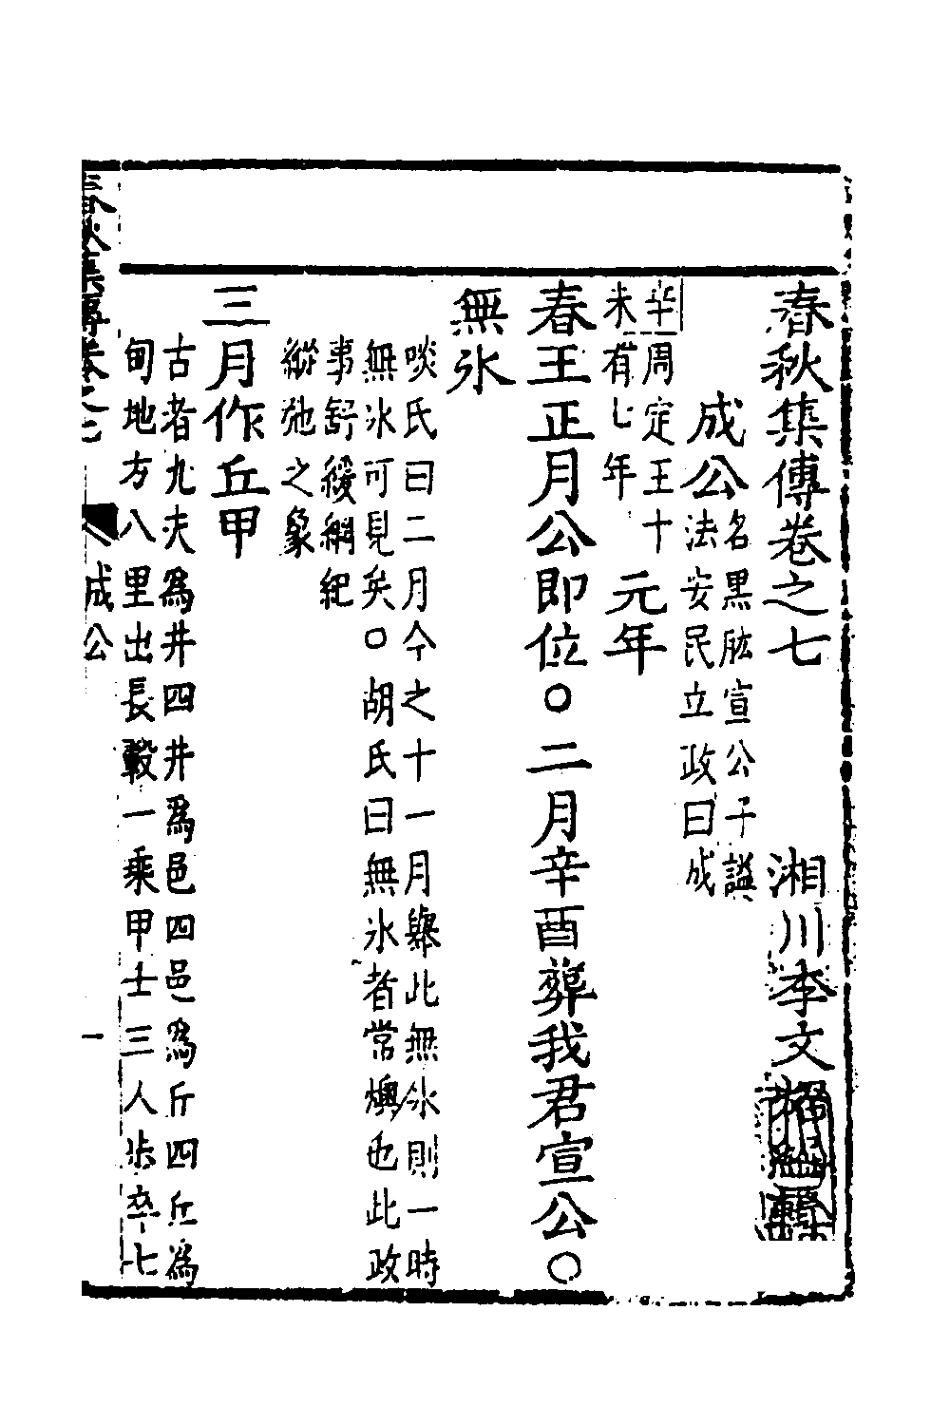 春秋集傳卷之七 湘川李文
成公名黑肱宣公子謚
法安民立政曰成
辛周定王十
未有七年 元年
春王正月公即位○二月辛酉葬我君宣公○
無氷
啖氏曰二月今之十一月舉此無氷則一時
無氷可見矣○胡氏曰無氷者常燠也此政
事舒緩綱紀
縱弛之象
三月作丘甲
古者九夫為井四井為邑四邑為丘四丘為
甸地方八里出長轂一乘甲士三人步卒七
春秋集傳卷之七 成公 一